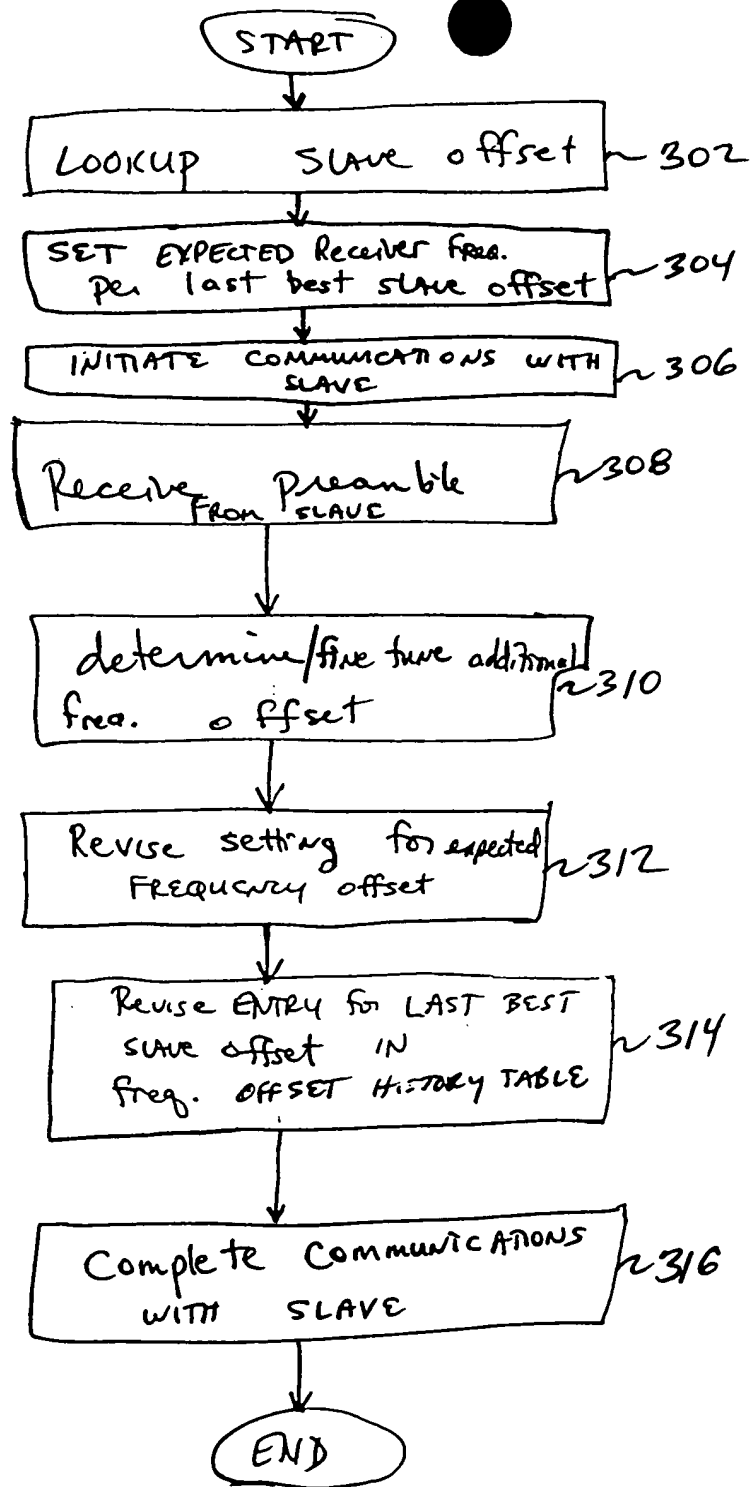 START
LOOKUP SLAVE offset 302
SET EXPECTED Receiver FREQ.
per last best SLAVE offset 304
INITIATE COMMUNICATIONS WITH
SLAVE 306
Receive Preamble
FROM SLAVE 308
determine/fine tune additional
freq. offset 310
Revise setting for expected
FREQUENCY offset 312
Revise ENTRY for LAST BEST
SLAVE offset IN
freq. OFFSET HISTORY TABLE 314
Complete COMMUNICATIONS
WITH SLAVE 316
END